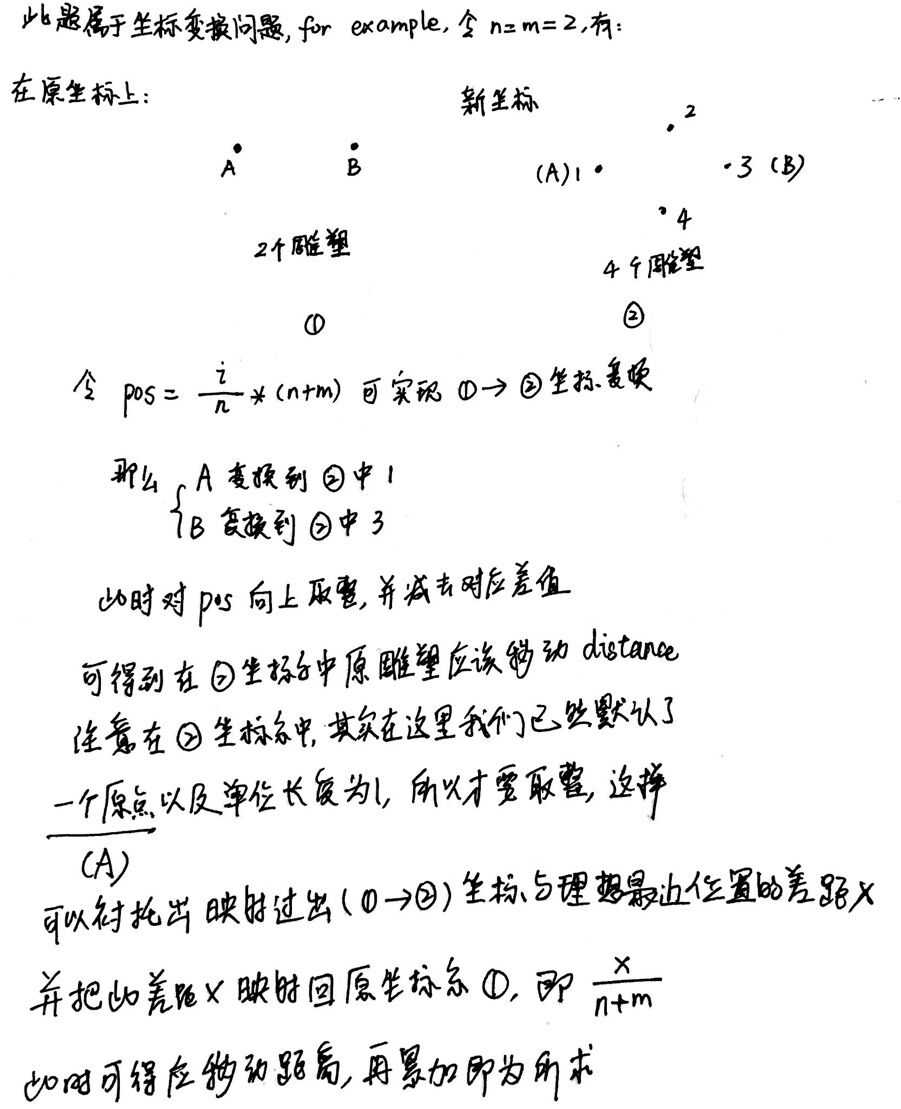 此题属于坐标变换问题, for example, 令 n=m=2, 有:
在原坐标上:
新坐标
A
B
(A) 1
2
3 (B)
4
2个雕塑
4个雕塑
①
②
令 pos = i/n * (n+m) 可实现 ①→②坐标变换
那么 { A 变换到 ②中 1
B 变换到 ②中 3
此时对 pos 向上取整, 并减去对应差值
可得到在②坐标系中原雕塑应该移动 distance
注意在②坐标系中, 其实在这里我们已然默认了
一个原点以及单位长度为1, 所以才要取整, 这样
(A)
可以衬托出映射过出(①→②)坐标与理想最近位置的差距x
并把此差距x映射回原坐标系①, 即 x/(n+m)
此时可得应移动距离, 再累加即为所求